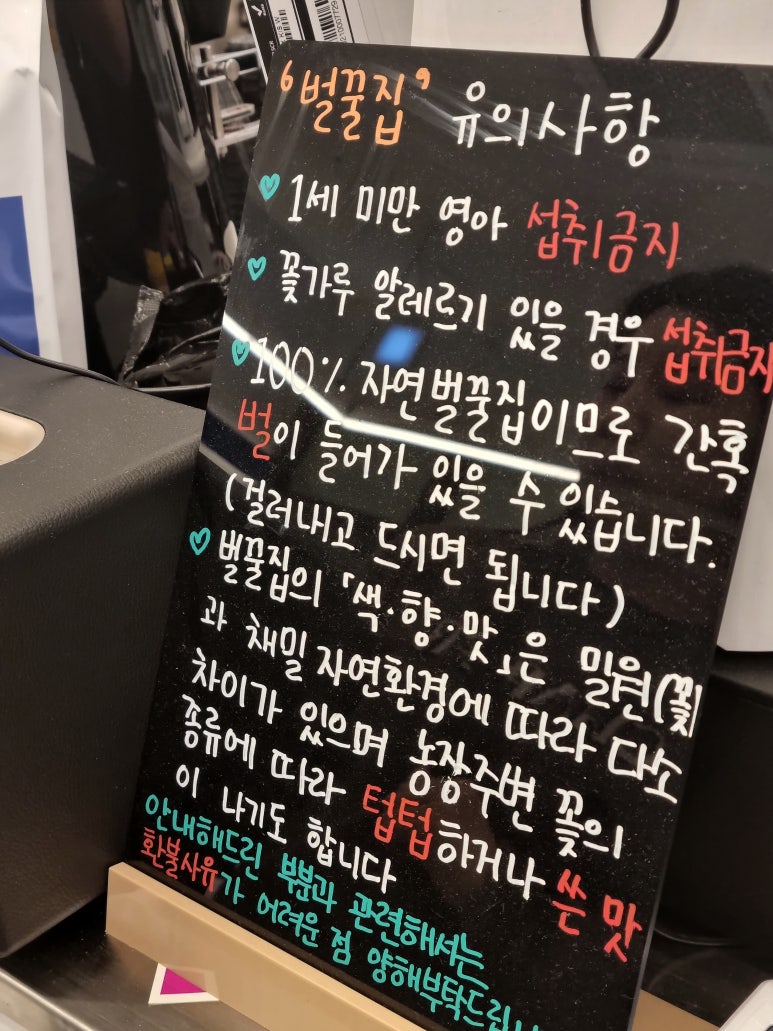 '벌꿀집' 유의사항
♡ 1세 미만 영아 섭취금지
♡ 꽃가루 알레르기 있을 경우 섭취금지
♡ 100% 자연벌꿀집이므로 간혹
벌이 들어가 있을 수 있습니다.
(걸러내고 드시면 됩니다)
♡ 벌꿀집의 「색·향·맛」은 밀원(꽃)
과 채밀 자연환경에 따라 다소
차이가 있으며 농장주변 꽃의
종류에 따라 텁텁하거나 쓴 맛
이 나기도 합니다
안내해드린 부분과 관련해서는
환불사유가 어려운 점 양해부탁드립니